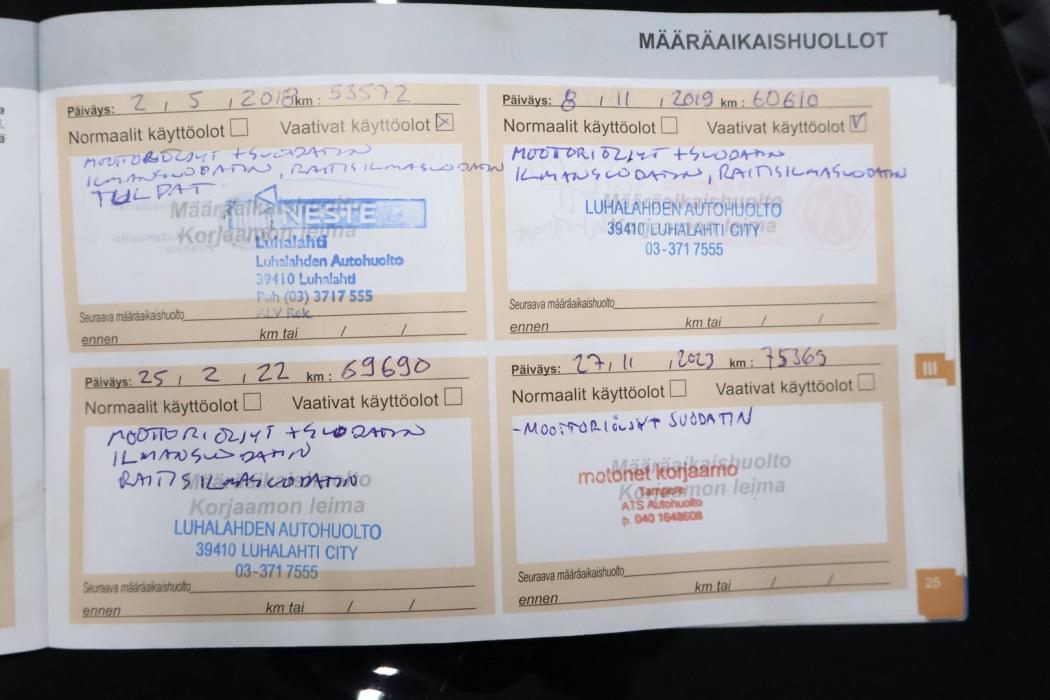 MÄÄRÄAIKAISHUOLLOT
Päiväys: 2 / 5 / 2018 km: 53572
Normaalit käyttöolot Vaativat käyttöolot
MOOTTORIÖLJYT + SUODATIN
ILMANSUODATIN, RAITISILMASUODATIN
TULPAT
Määräaikaishuolto
Korjaamon leima
NESTE
Luhalahti
Luhalahden Autohuolto
39410 Luhalahti
Puh (03) 3717 555
ALV Rek.
Seuraava määräaikaishuolto
ennen km tai / /
Päiväys: 8 / 11 / 2019 km: 60610
Normaalit käyttöolot Vaativat käyttöolot
MOOTTORIÖLJYT + SUODATIN
ILMANSUODATIN, RAITISILMASUODATIN
LUHALAHDEN AUTOHUOLTO
39410 LUHALAHTI CITY
03-371 7555
Seuraava määräaikaishuolto
ennen km tai / /
Päiväys: 25 / 2 / 22 km: 69690
Normaalit käyttöolot Vaativat käyttöolot
MOOTTORIÖLJYT + SUODATIN
ILMANSUODATIN
RAITISILMASUODATIN
Määräaikaishuolto
Korjaamon leima
LUHALAHDEN AUTOHUOLTO
39410 LUHALAHTI CITY
03-371 7555
Seuraava määräaikaishuolto
ennen km tai / /
Päiväys: 27 / 11 / 2023 km: 75365
Normaalit käyttöolot Vaativat käyttöolot
- MOOTTORIÖLJY + SUODATIN
Määräaikaishuolto
Korjaamon leima
motonet korjaamo
Tampere
ATS Autohuolto
p. 040 1648608
Seuraava määräaikaishuolto
ennen km tai / /
III
25